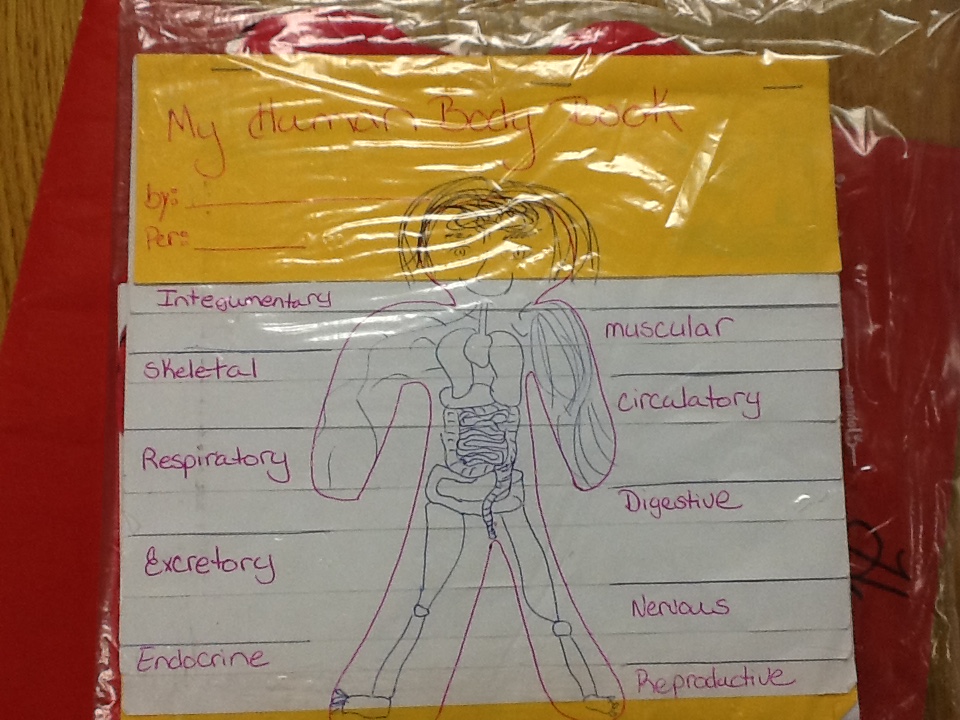 My Human Body Book
by:
Per:
Integumentary
muscular
Skeletal
circulatory
Respiratory
Digestive
Excretory
Nervous
Endocrine
Reproductive